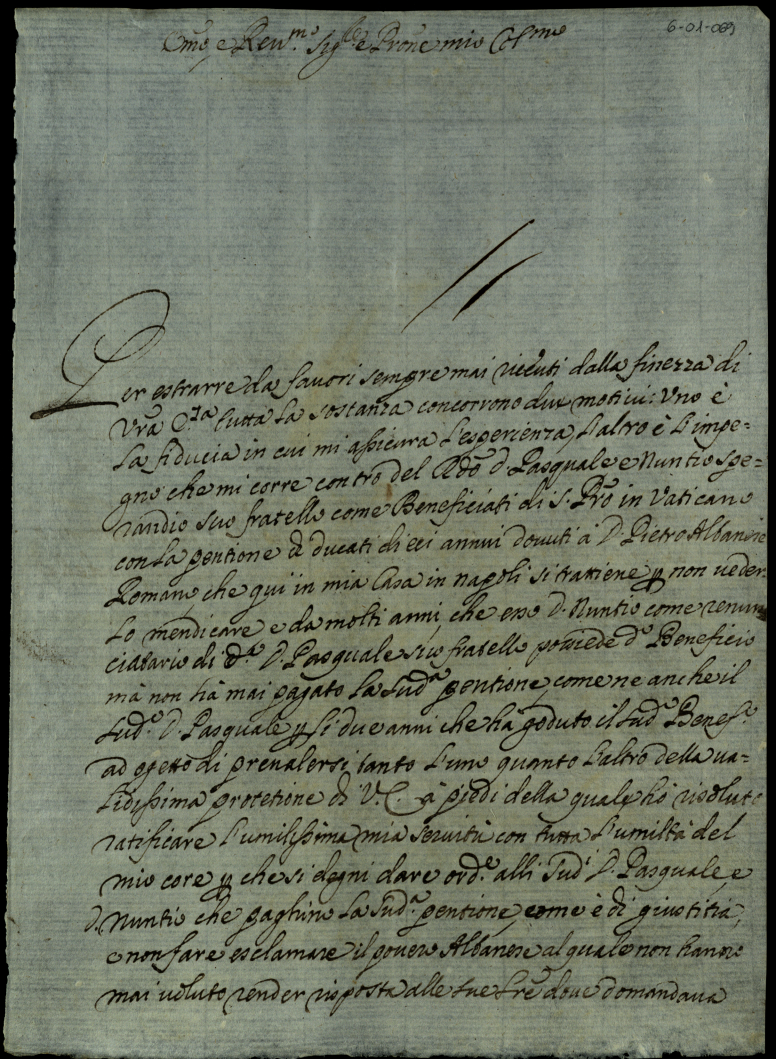 6-01-069
Em̃o, e Reu.mo Sig.re e Prõne mio Col.mo
Per estrarre da fauori sempre mai riceuti dalla finezza di
Vr̃a E.za tutta la sostanza concorrono due motiui: Vno è
la fiducia in cui mi assicura l'esperienza, l'altro è l'impe-
gno che mi corre contro del Rd̃o D. Pasquale e Nuntio Spe-
randio suo fratello come Beneficiati di S. Pr̃o in Vaticano
con la pentione di ducati dieci annui douuti à D. Pietro Albanese
Romano, che qui in mia Casa in napoli si trattiene p non ueder-
lo mendicare e da molti anni, che esso D. Nuntio come renun
ciatario di d.o D. Pasquale suo fratello possiede d.o Beneficio
mà non hà mai pagato la sud.a pentione, come ne anche il
sud.o D. Pasquale p li due anni che hà goduto il sud.o Benef.o
ad ogetto di preualersi tanto l'uno quanto l'altro della ua-
lidissima protetione di V. E. à piedi della quale hò risoluto
ratificare l'umilissima mia seruitù con tutta l'umiltà del
mio core p che si degni dare ord.e alli sud.i D. Pasquale, e
D. Nuntio che paghino la sud.a pentione, come è di giustitia,
e non fare esclamare il pouero Albanese al quale non hanno
mai uoluto render risposta alle sue lr̃e doue domandaua